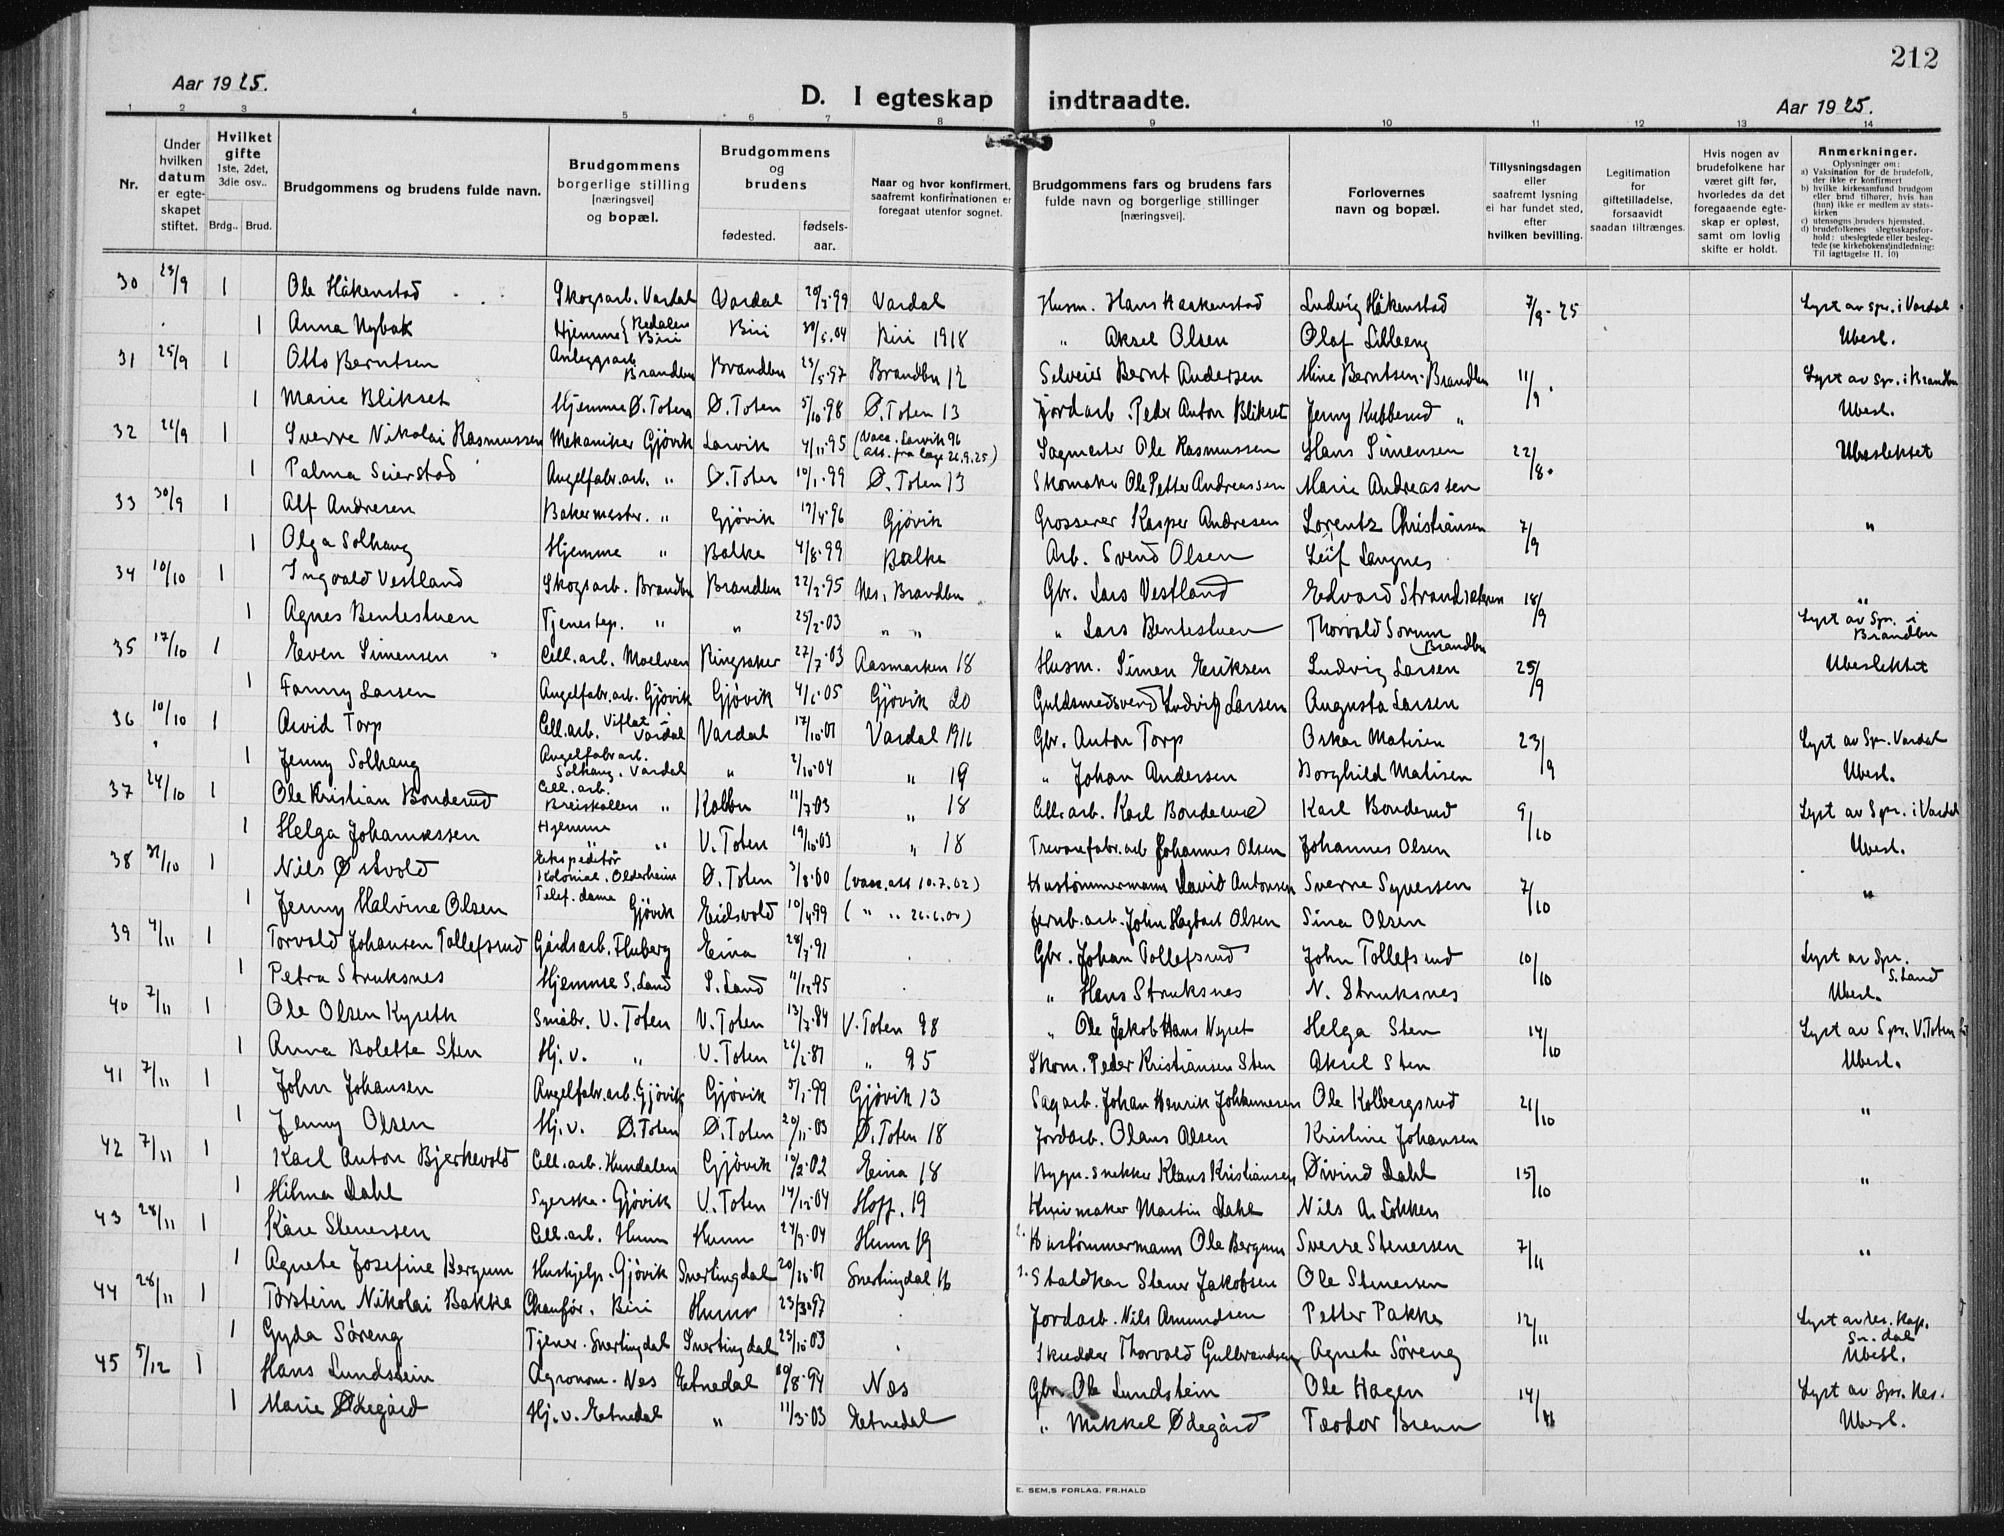 212
Aar 1925.
D. I egteskap indtraadte.
Aar 1925.
1 2 3 4 5 6 7 8 9 10 11 12 13 14
Nr.
Under hvilken datum er egteskapet stiftet.
Hvilket gifte 1ste, 2det, 3die osv..
Brdg.. Brud.
Brudgommens og brudens fulde navn.
Brudgommens borgerlige stilling [næringsvei] og bopæl.
Brudgommens og brudens
fødested. fødselsaar.
Naar og hvor konfirmert, saafremt konfirmationen er foregaat utenfor sognet.
Brudgommens fars og brudens fars fulde navn og borgerlige stillinger [næringsvei].
Forlovernes navn og bopæl.
Tillysningsdagen eller saafremt lysning ei har fundet sted, efter hvilken bevilling.
Legitimation for giftetilladelse, forsaavidt saadan tiltrænges.
Hvis nogen av brudefolkene har været gift før, hvorledes da det foregaaende egteskap er opløst, samt om lovlig skifte er holdt.
Anmerkninger.
Oplysninger om:
a) Vaksination for de brudefolk, der ikke er konfirmert
b) hvilke kirkesamfund brudgom eller brud tilhører, hvis han (hun) ikke er medlem av statskirken
c) utensogns bruders hjemsted.
d) brudefolkenes slegtsskapsforhold: ubeslegtede eller beslegtede (se kirkebokens indledning: Til iagttagelse 11. 10)
30 23/9 1 Ole Håkenstad Skogsarb. Vardal Vardal 99 Vardal Husm. Hans Haakenstad Ludvig Håkenstad 7/9-25 Lyst av spr. i Vardal
1 Anna Nybak Hjemme {Redalen Biri Biri 04 Biri 1918 " Aksel Olsen Olaf Ubesl.
31 25/9 1 Otto Berntsen Anleggsarb Brandbu Brandbu 23/5-97 Brandbu 12 Bernt Andersen Mine Berntsen-Brandbu 11/9 Lyst av Spr. i Brandbu
1 Marie Blikset Hjemme Ø. Toten Ø. Toten 5/10-98 Ø. Toten 13 Jordarb. Peder Anton Blikset Jenny Kubberud " Ubesl.
32 1 Sverre Nikolai Rasmussen Mekaniker Gjøvik Larvik 4/11-95 (Vacc. Larvik 96 att. fra læge 26.9.25) Sagmester Ole Rasmussen Hans Simensen 22/8 Ubeslektet
1 Palma Seierstad Angelfabr.arb. " Ø. Toten 10/1-99 Ø. Toten 13 Skomaker Ole Petter Andreassen Marie Andreassen
33 30/9 1 Alf Andresen Bakermester. " Gjøvik 96 Gjøvik Grosserer Kasper Andresen Lorentz Christiansen 7/9 "
1 Olga Solhaug Hjemme " Balke 4/8-99 Balke Arb. Svend Olsen Leif Langnes
34 10/10 1 Ingvald Vestland Skogsarb. Brandbu Brandbu 22/2-95 Nes, Brandbu Gbr. Lars Vestland Edvard 18/9 "
1 Agnes Bentestuen Tjenestep. " " 25/2-03 " " " Lars Bentestuen Thorvald Sorum Brandbu Lyst av Spr. i Brandbu
35 17/10 1 Even Simensen Cell. arb. Moelven Ringsaker 27/7-03 Aasmarken 18 Husm. Simen Eriksen Ludvig Larsen 25/9 Ubeslektet
1 Fanny Larsen Angelfabr.arb. Gjøvik Gjøvik 05 Gjøvik 20 Guldsmedsvend Ludvig Larsen Augusta Larsen
36 10/10 1 Arvid Torp Cell.arb. Viflat i Vardal Vardal 17/10-01 Vardal 1916 Gbr. Anton Torp Oskar Matisen 23/9 Lyst av Spr. Vardal
1 Jenny Solhaug Angelfabr arb. Solhaug, Vardal " 2/10-04 " 19 " Johan Andersen Borghild Matisen Ubesl.
37 24/10 1 Ole Kristian Bonderud Cell. arb. Breiskallen " Kolbu 11/7-03 " 18 Cell. arb. Karl Bonderud Karl Bonderud 9/10 Lyst av Spr. i Vardal
1 Helga Johannessen Hjemme " " V. Toten 19/10-03 " 18 Trevarefabr. arb Johannes Olsen Johannes Olsen Ubesl.
38 31/10 1 Nils Østvold Ekspeditør Kolonial. Olderheim Ø. Toten 3/8-00 (vacc. att 10.7.02) Hustømmermann David Antonsen Sverre Syversen 7/10 "
1 Jenny Halvine Olsen Telef. dame Gjøvik Eidsvold 10/4-99 ( " " 26.6.00) Jernb. arb. John Hagbart Olsen Sina Olsen
39 4/11 1 Torvald Johansen Tollefsrud Gårdsarb. Fluberg Eina 91 Gbr. Johan Tollefsrud John Tollefsrud 10/10 Lyst av Spr. S. Land
1 Petra Struksnes Hjemme S. Land S. Land 11/12-95 " Hans Struksnes N. Struksnes Ubesl.
40 7/11 1 Ole Olsen Kyseth Småbr. V. Toten V. Toten 13/7-84 V. Toten 98 " Ole Jakob Hans Helga Sten 14/10 Lyst av Spr. V. Toten
1 Anna Bolette Sten Hj. v. " V. Toten " 95 Skom. Peder Kristiansen Sten Aksel Sten Ubesl.
41 7/11 1 John Johansen Angelfabr. arb. Gjøvik Gjøvik 99 Gjøvik 13 Sagarb. Johan Henrik Johannesen Ole Kolbergsrud 21/10 "
1 Jenny Olsen Hj. v. Ø. Toten Ø. Toten 20/11-03 Ø. Toten 18 Jordarb. Olaus Olsen Kristine Johansen
42 7/11 1 Karl Anton Bjerkevold Cell. arb. Hundalen Gjøvik 10/2-02 Eina 18 Bygn. snekker Klaus Kristiansen Øivind Dahl 15/10 "
1 Hilma Dahl Syerske. Gjøvik V. Toten 14/12-04 Hoff. 19 Hjulmaker Martin Dahl Nils A. Løkken
43 28/11 1 Kåre Stenersen Cell. arb. Hunn Hunn 27/9-04 Hunn 19 2. Hustømmermann Ole Bergum Sverre Stenersen 7/11 "
1 Agnete Josefine Bergum Hushjelp. Gjøvik Snertingdal 20/10-01 Snertingdal 16 1. Staldkar Stener Jakobsen Ole Stenersen
44 28/11 1 Torstein Nikolai Bakke Chauffør. Biri Hunn 97 Jordarb. Nils Amundsen Petter Bakke 12/11 Lyst av res. Kap. Sn. dal
1 Gyda Søreng Tjener. Snertingdal Snertingdal 23/10-03 Skredder Thorvald Gulbrandsen Agnete Søreng Ubesl.
45 5/12 1 Hans Lundstein Agronom. Nes Etnedal 94 Nes Gbr. Ole Lundstein Ole Hagen 14/11 Lyst av Spr. Nes.
1 Marie Ødegård Hj. v. Etnedal " 11/3-03 Etnedal " Mikkel Ødegård Teodor Brenn Ubesl.
E. SEM,S FORLAG. FR.HALD